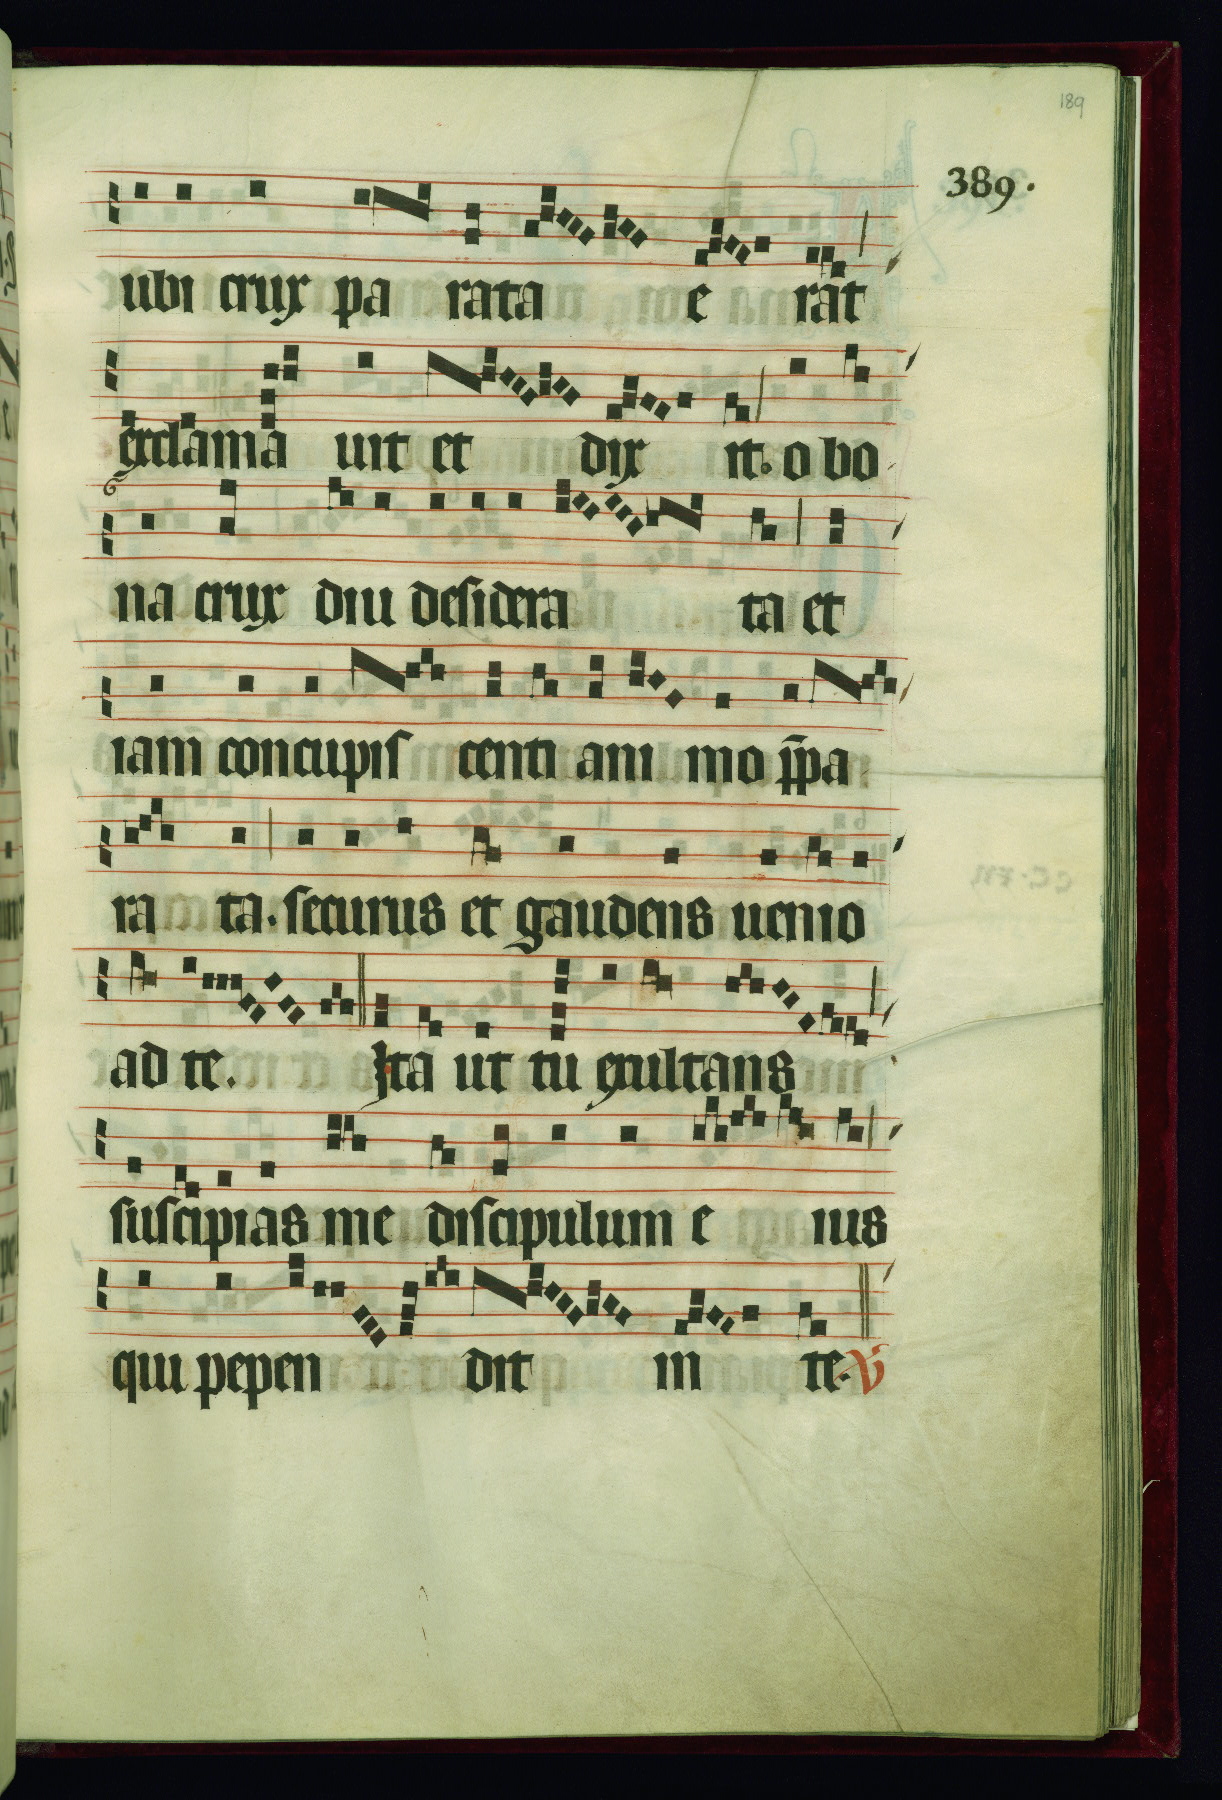 189
389.
ubi crux pa rata e rat
exclama uit et dix it. o bo
na crux diu desidera ta et
iam concupis centi ani mo p̄pa
ra ta. securus et gaudens uenio
ad te. Ita ut tu exultans
suscipias me discipulum e ius
qui pepen dit in te. V